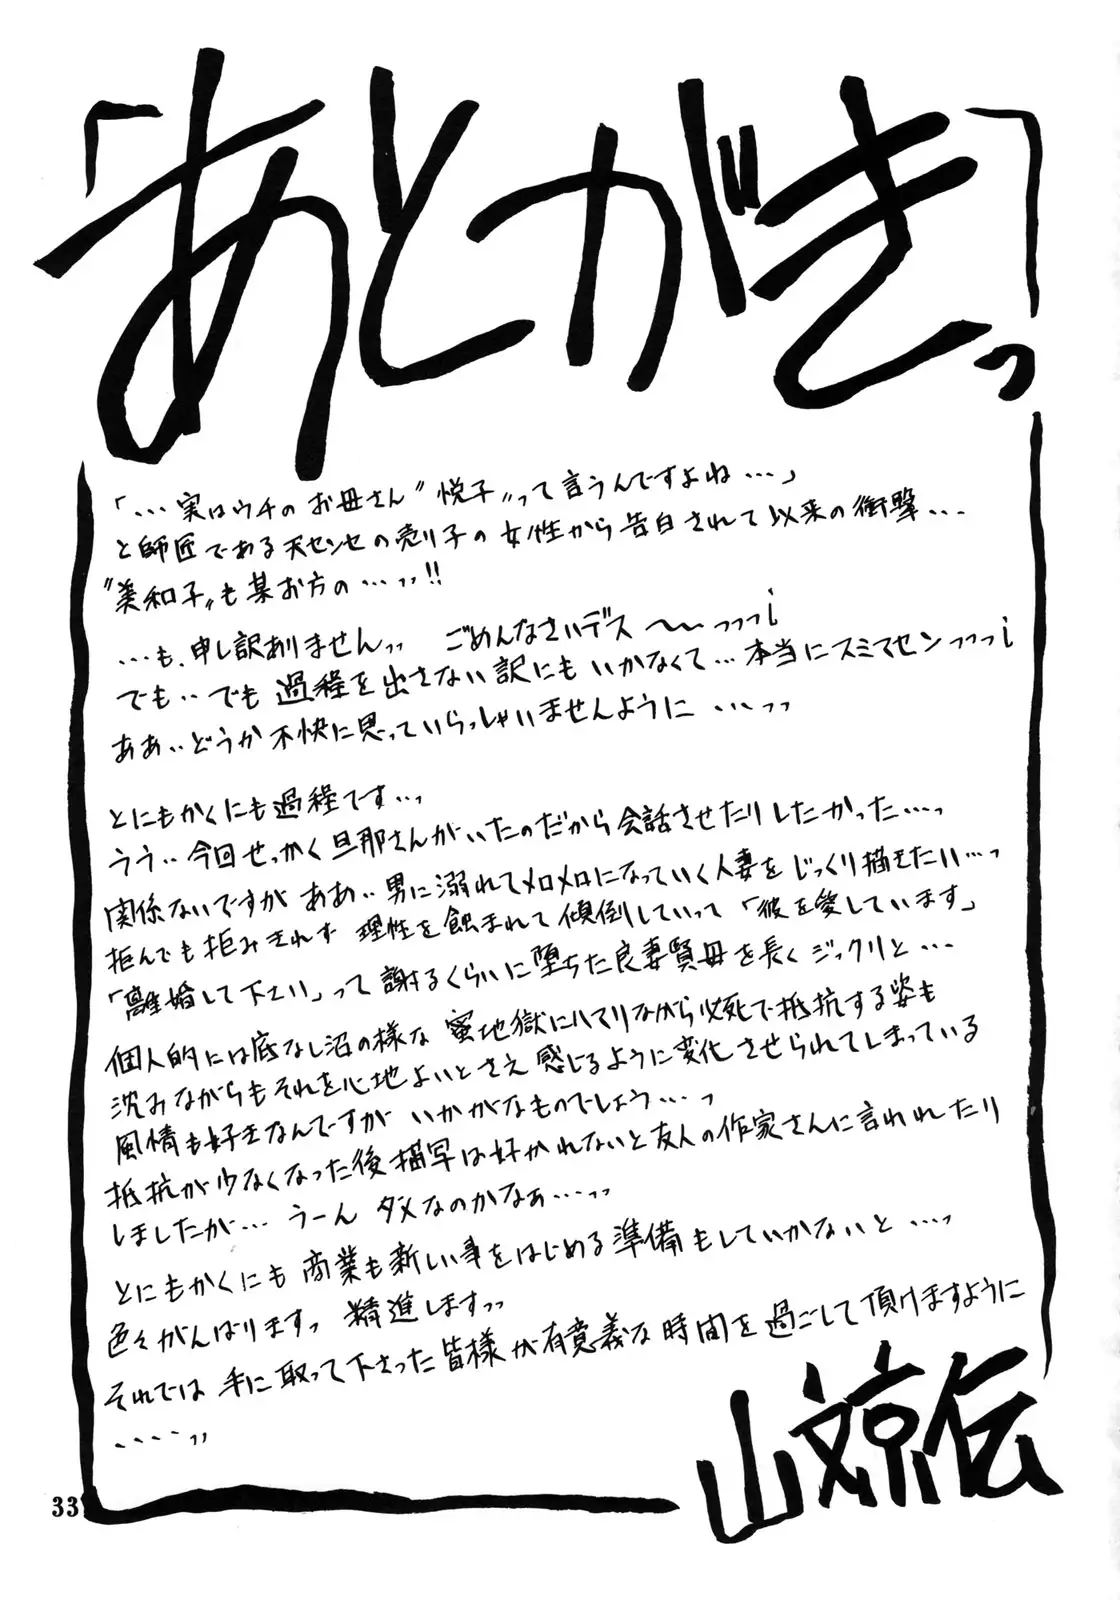 「あとがきっ」
「…実はウチのお母さん”悦子”って言うんですよね…」
と師匠である天センセの売り子の女性から告白されて以来の衝撃…
”美和子”も某お方の…っっ!!
…も、申し訳ありませんっっ ごめんなさいデス〜〜っっっ¡
でも‥でも過程を出さない訳にもいかなくて…本当にスミマセンっっっ¡
ああ‥どうか不快に思っていらっしゃいませんように…っっ
とにもかくにも過程です…っ
うう‥今回せっかく旦那さんがいたのだから会話させたりしたかった…っ
関係ないですがああ‥男に溺れてメロメロになっていく人妻をじっくり描きたい…っ
拒んでも拒みきれず理性を蝕まれて傾倒していって「彼を愛しています」
「離婚して下さい」って謝るくらいに堕ちた良妻賢母を長くジックリと…
個人的には底なし沼の様な蜜地獄にハマりながら必死で抵抗する姿も
沈みながらもそれを心地よいとさえ感じるように変化させられてしまっている
風情も好きなんですがいかがなものでしょう…っ
抵抗が少なくなった後描写は好かれないと友人の作家さんに言われたり
しましたが…うーんダメなのかなぁ…っっ
とにもかくにも商業も新しい事をはじめる準備もしていかないと…っ
色々がんばりますっ精進しますっっ
それでは手に取って下さった皆様が有意義な時間を過ごして頂けますように
‥‥っっ
山文京伝
33